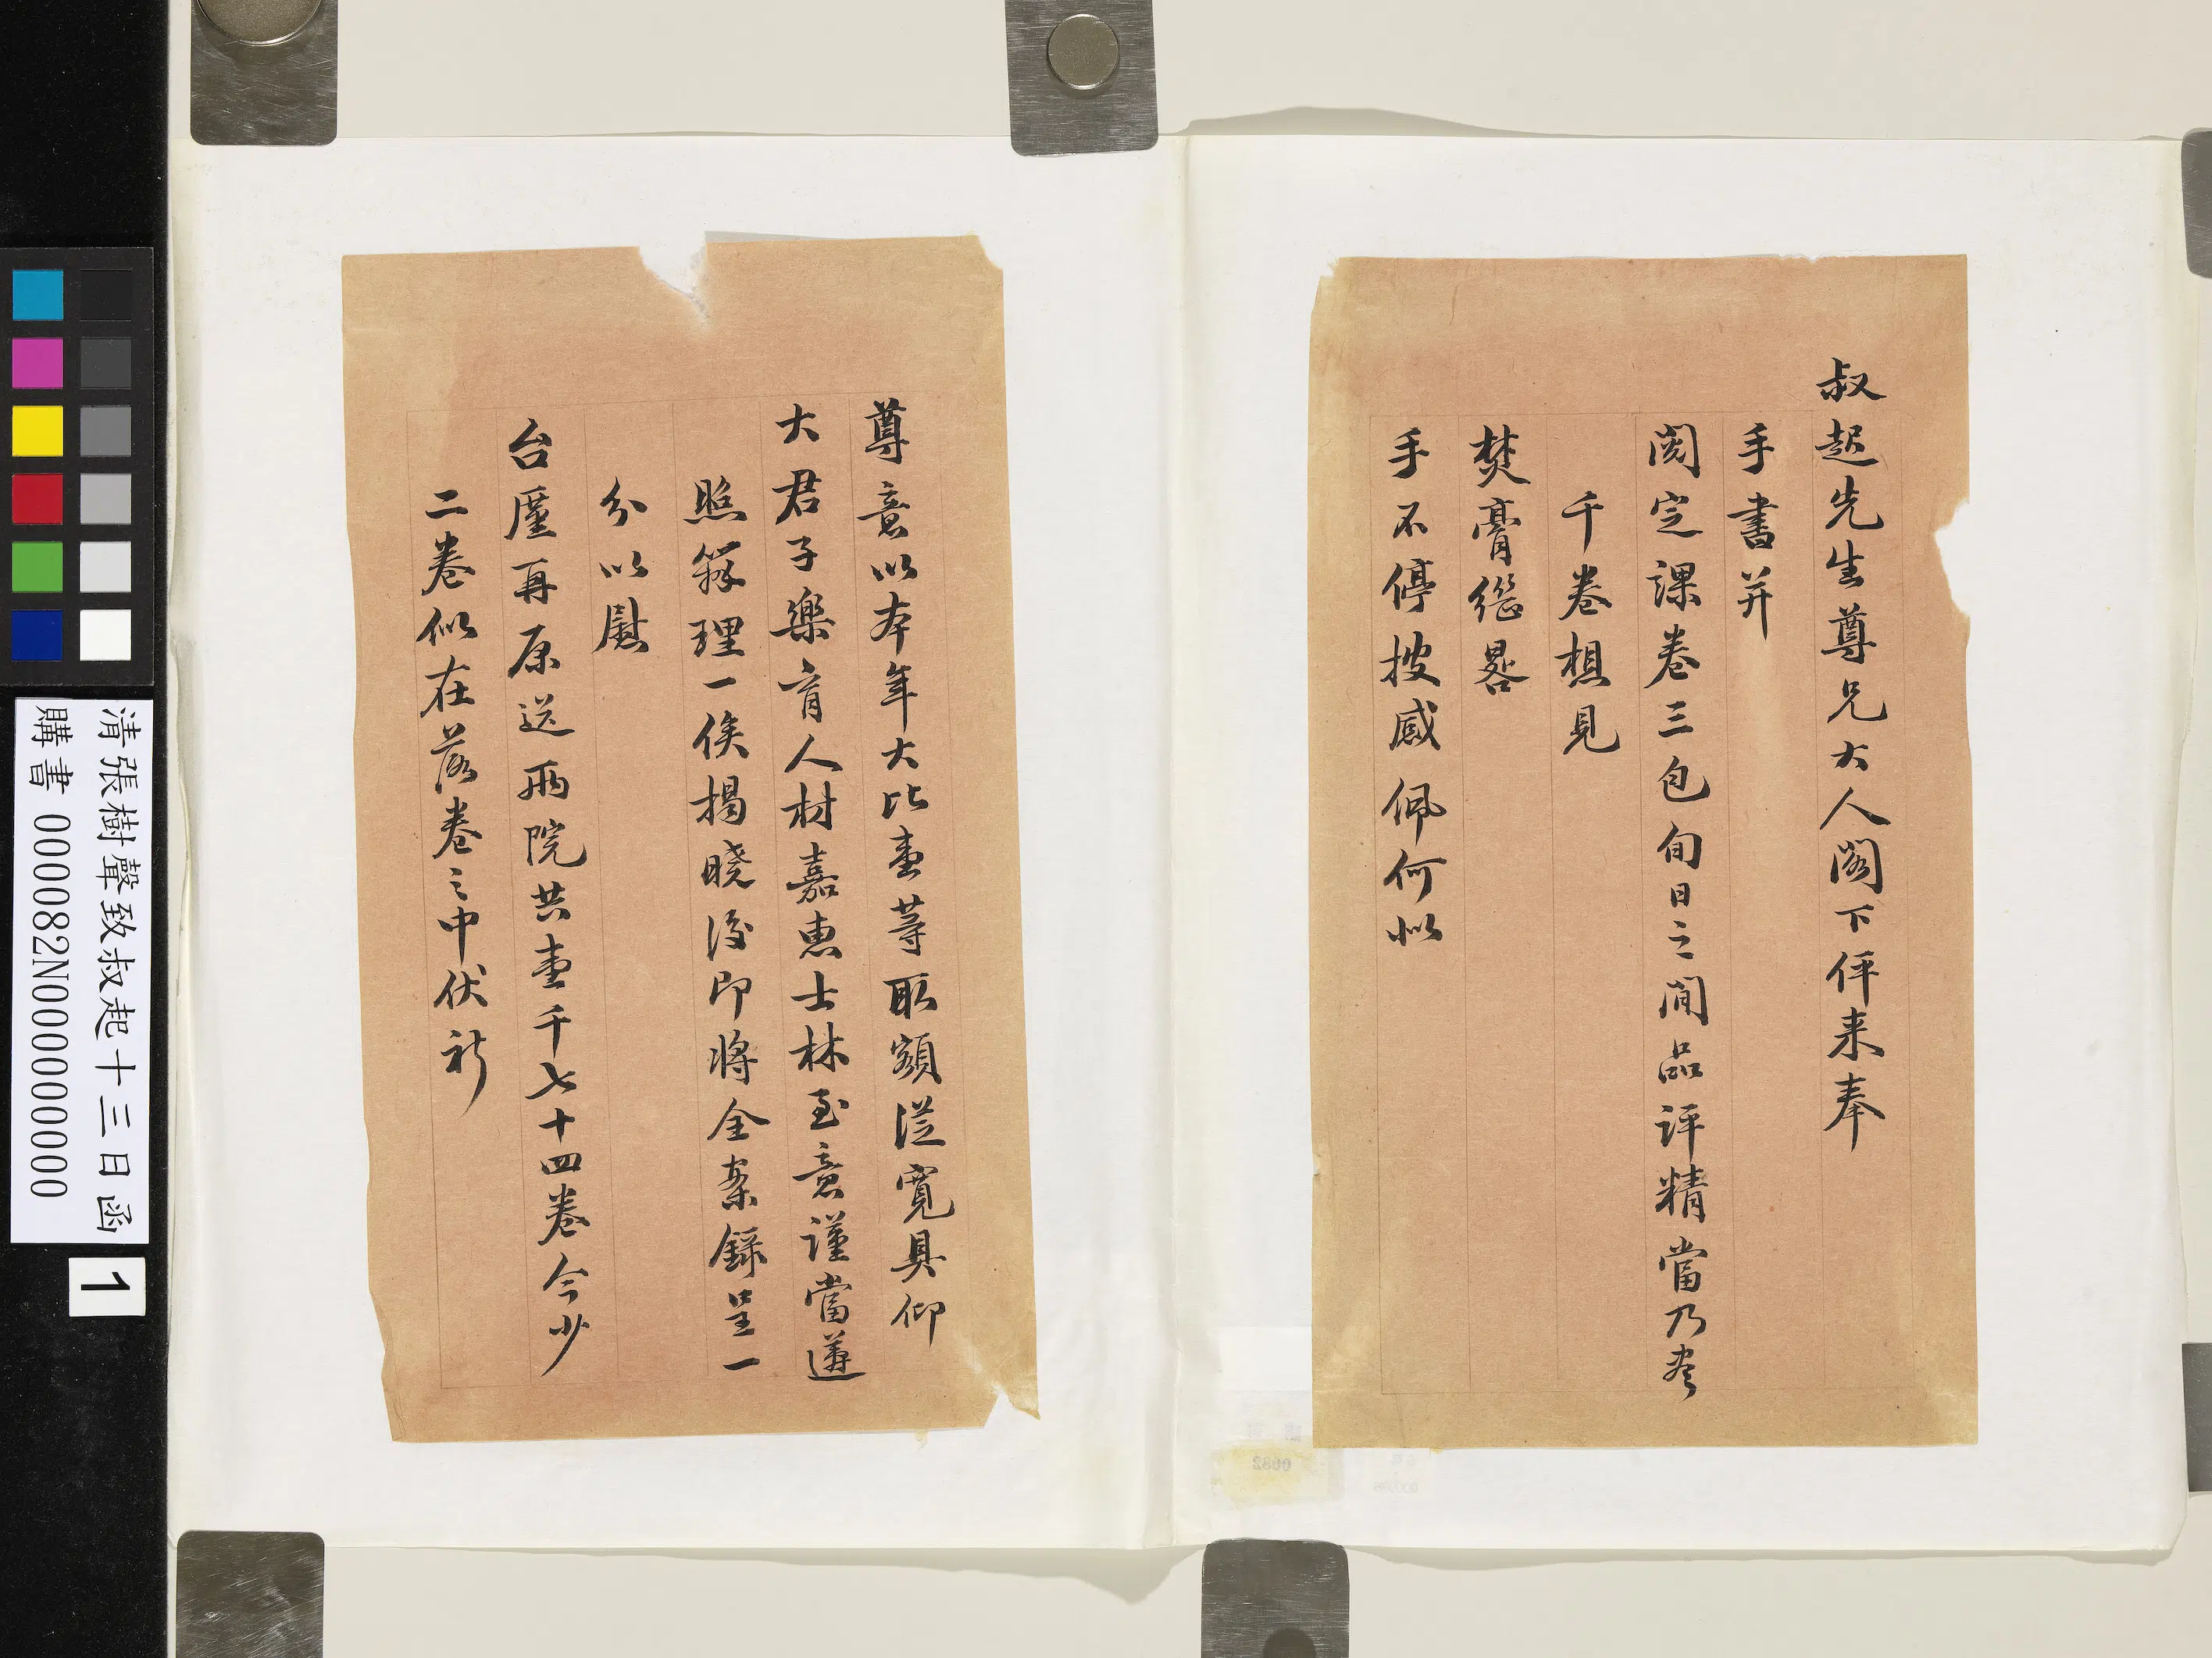 叔起先生尊兄大人閣下伻来奉
手書并
閱定課卷三包旬日之間品評精當乃盡
千卷想見
焚膏繼晷
手不停披感佩何似
尊意以本年大比壹等取額從寬具仰
大君子樂育人材嘉惠士林至意謹當遵
照辦理一俟揭曉後即將全案錄呈一
分以慰
台廑再原送兩院共壹千七十四卷今少
二卷似在落卷之中伏祈
清張樹聲致叔起十三日函
購書 0000082N000000000
1
0082